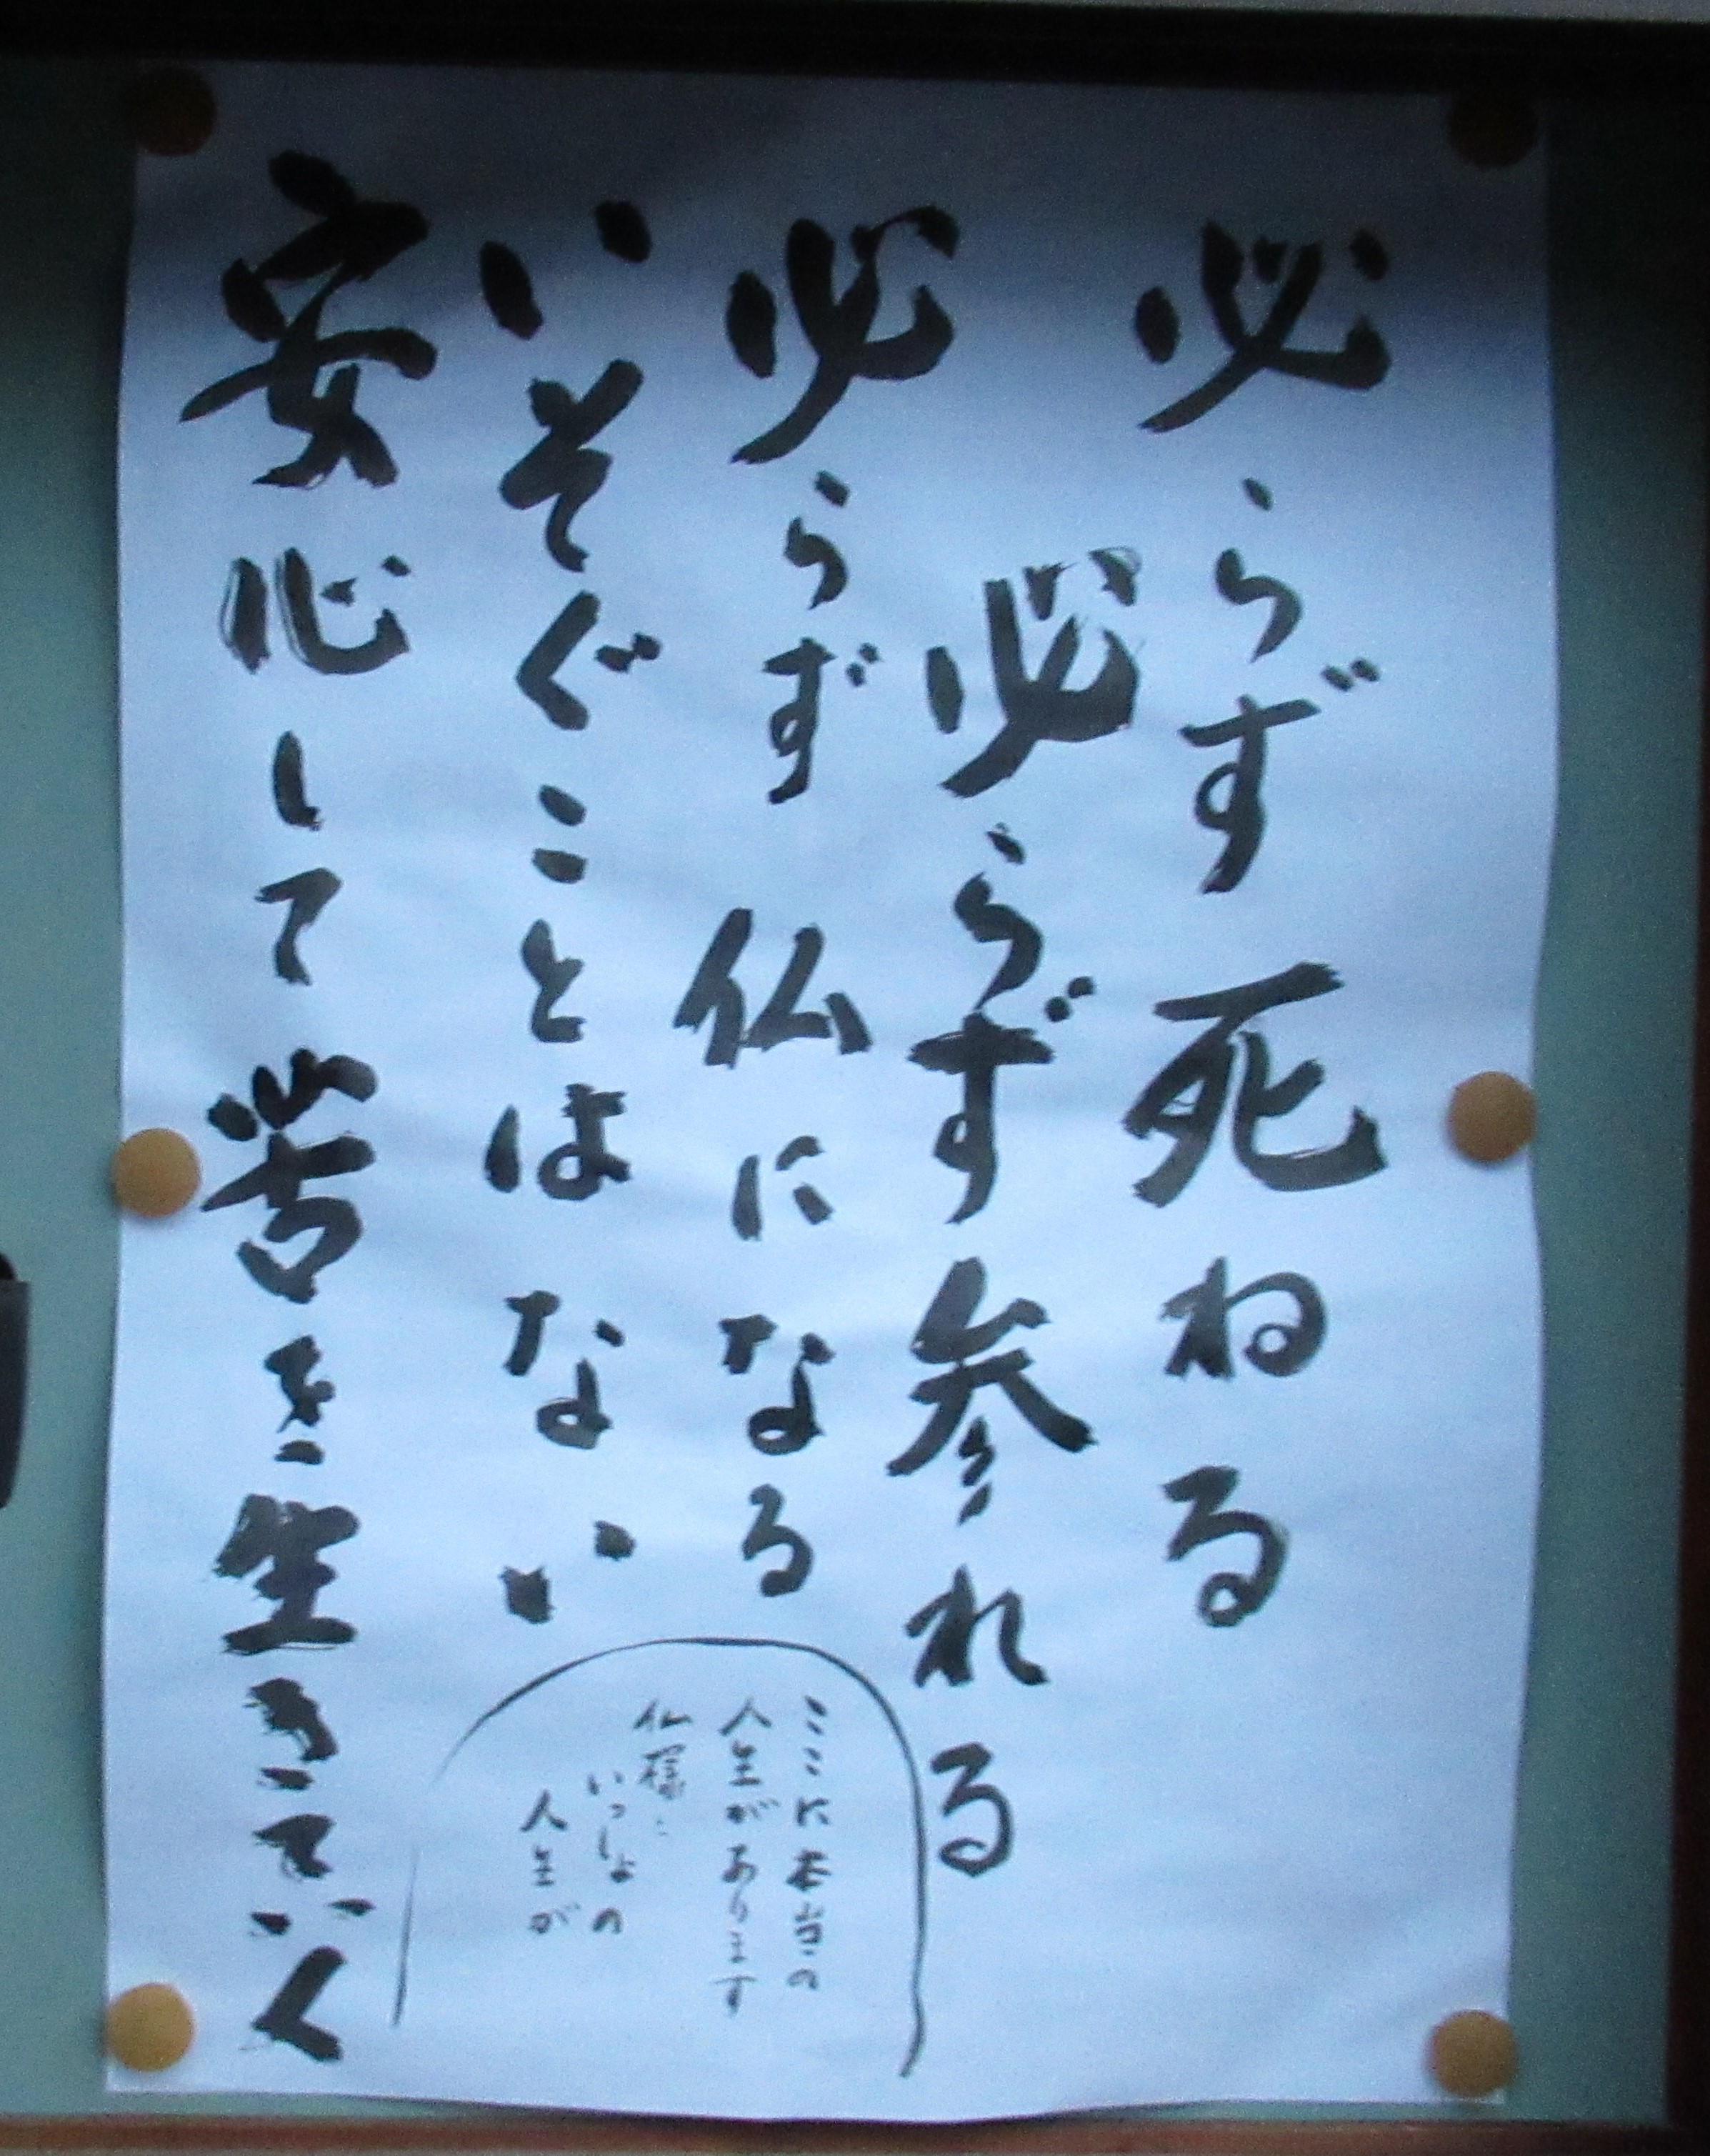 必らず死ねる
必らず参れる
必らず仏になる
いそぐことはない
安心して苦を生きていく
ここに本当の
人生があります
仏様と
いっしょの
人生が